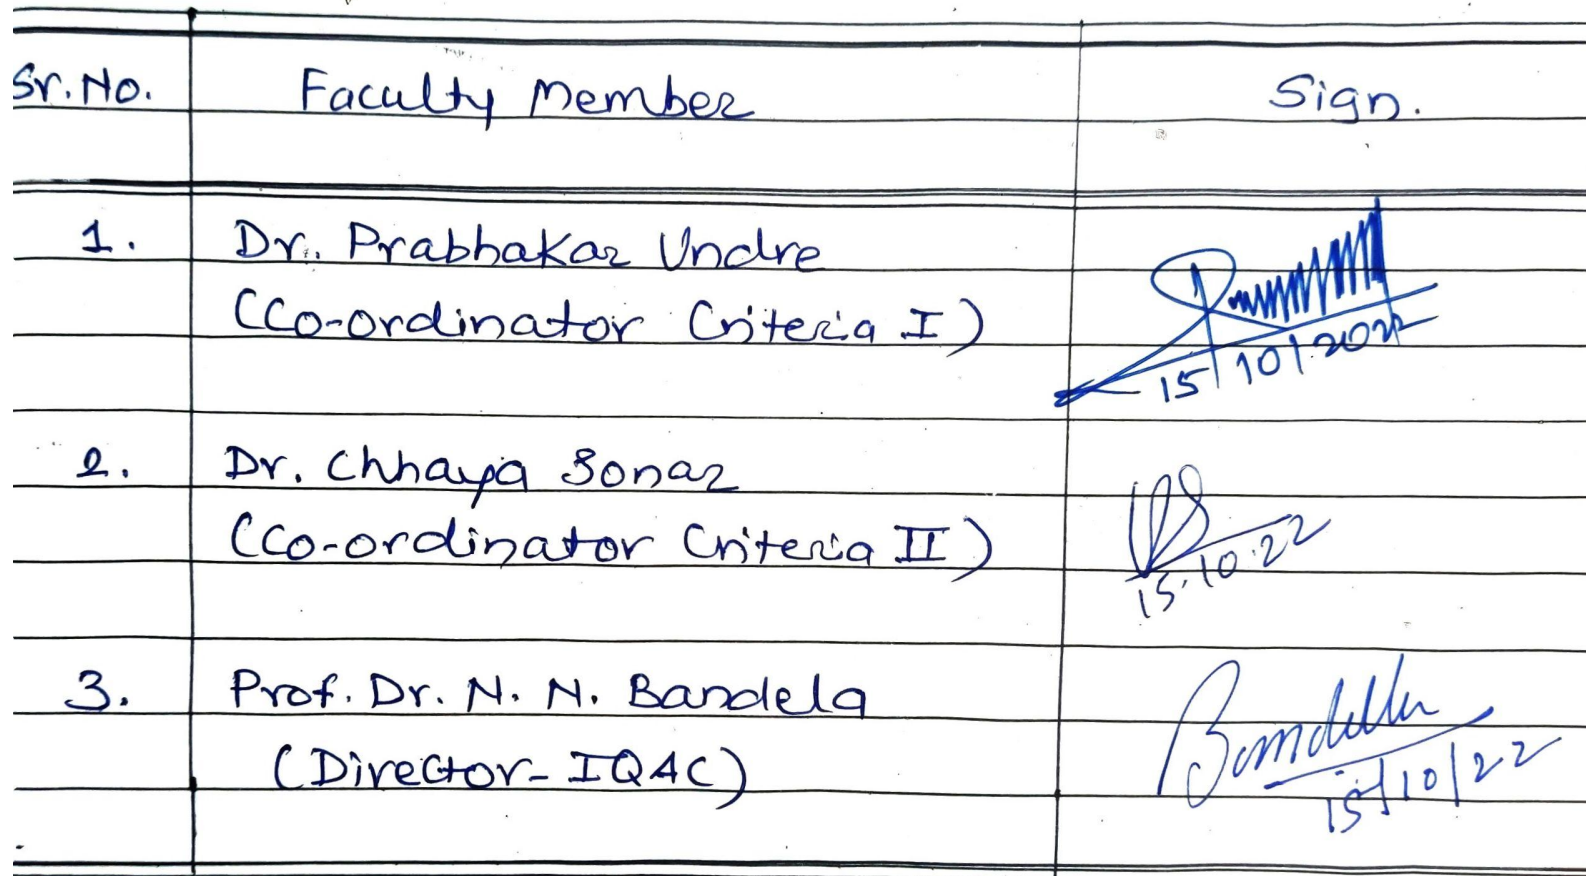 Sr. No. Faculty Member Sign.
1. Dr. Prabhakar Undre
(Co-ordinator Criteria I)
15/10/2022
2. Dr. Chhaya Sonar
(Co-ordinator Criteria II)
15.10.22
3. Prof. Dr. N. N. Bandela
(Director- IQAC)
15/10/22